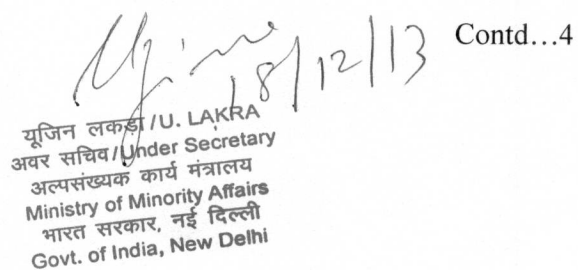 Contd...4
18/12/13
यूजिन लकड़ा/U. LAKRA
अवर सचिव/Under Secretary
अल्पसंख्यक कार्य मंत्रालय
Ministry of Minority Affairs
भारत सरकार, नई दिल्ली
Govt. of India, New Delhi